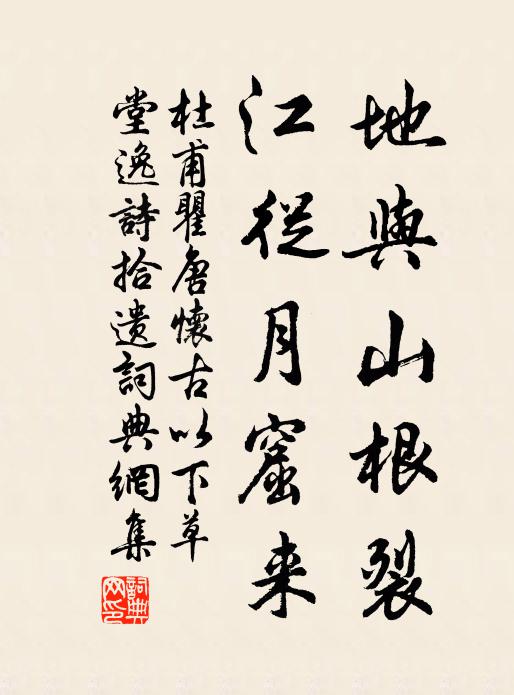 地與山根裂
江從月窟来
杜甫瞿唐懷古以下草
堂逸詩拾遺詞典網集
詞典網印